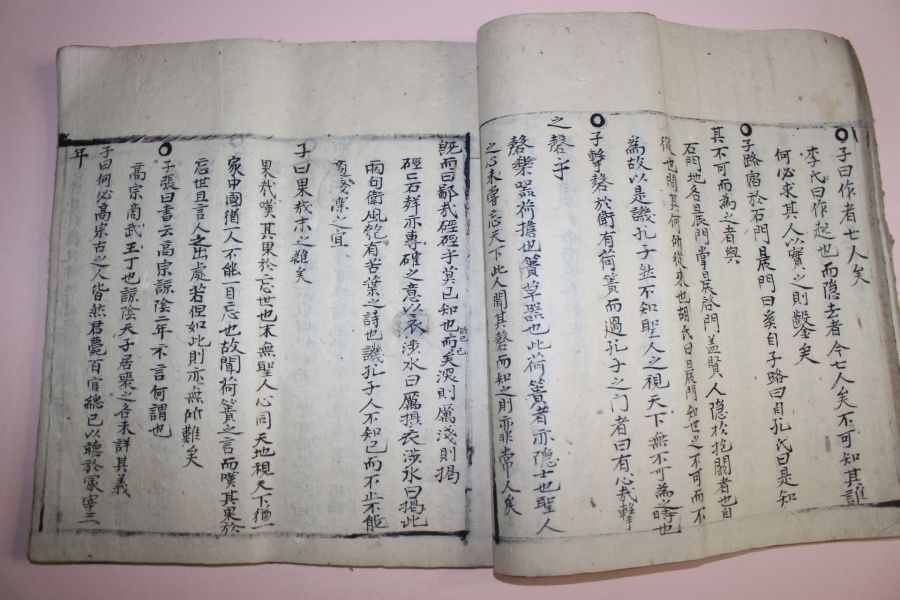 子曰作者七人矣
李氏曰作起也而隱去者今七人矣不可知其誰
何必求其人以實之則鑿矣
子路宿於石門晨門曰奚自子路曰自孔氏曰是知
其不可而為之者與
石門地名晨門掌晨啓門盖賢人隱於抱關者也自
從也問其何所從來也胡氏曰晨門知世之不可而不
為故以是譏孔子然不知聖人之視天下無不可為之時也
子擊磬於衛有荷蕢而過孔子之门者曰有心哉擊
之磬乎
磬樂器荷擔也蕢草器也此荷蕢者亦隱士也聖人
之心未嘗忘天下此人聞其磬而知之則亦非常人矣
既而曰鄙哉硜硜乎莫己知也而矣深則厲淺則揭
硜〻石聲亦專確之意以衣涉水曰厲摂衣涉水曰揭此
兩句衛風匏有苦葉之詩也譏孔子人不知己而不止不能
適淺深之宜
子曰果哉末之難矣
果哉嘆其果於忘世也末無聖人心同天地視天下猶一
家中國猶一人不能一日忘也故聞荷蕢之言而嘆其果於
忘世且言人之出處若但如此則亦無所難矣
子張曰書云高宗諒陰三年不言何謂也
高宗商武王丁也諒陰天子居喪之名未詳其義
子曰何必高宗古之人皆然君薨百官總己以聽於冢宰三
年